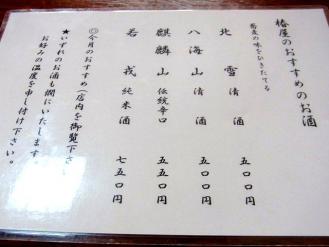 椿屋のおすすめのお酒
蕎麦の味をひきたてる
北雪 清酒 五〇〇円
八海山 清酒 五〇〇円
麒麟山 伝統辛口 五五〇円
若戎 純米酒 七五〇円
◎今月のおすすめ(店内を御覧下さい
★いずれのお酒も燗にいたします。
お好みの温度を申し付け下さい。